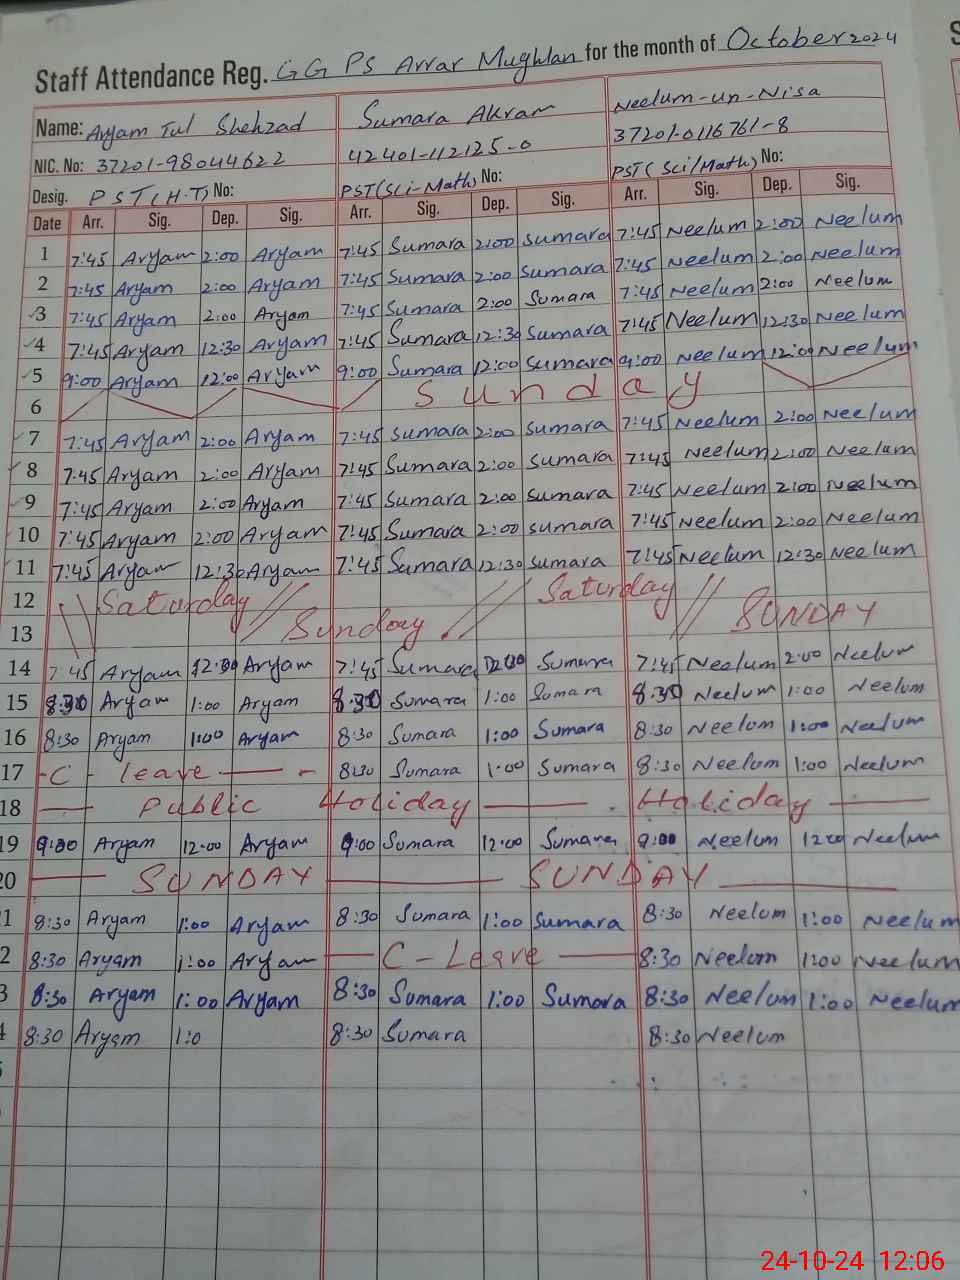 Staff Attendance Reg. GGPS Arrar Mughlan for the month of October 2024
Name: Aryam Tul Shehzad Sumara Akram Neelum-un-Nisa
NIC. No: 37201-98044622 42401-112125-0 37201-0116761-8
Desig. PST(H.T) No: PST(Sci-Math) No: PST(Sci/Math) No:
Date Arr. Sig. Dep. Sig. Arr. Sig. Dep. Sig. Arr. Sig. Dep. Sig.
1 7:45 Aryam 2:00 Aryam 7:45 Sumara 2:00 Sumara 7:45 Neelum 2:00 Neelum
2 7:45 Aryam 2:00 Aryam 7:45 Sumara 2:00 Sumara 7:45 Neelum 2:00 Neelum
3 7:45 Aryam 2:00 Aryam 7:45 Sumara 2:00 Sumara 7:45 Neelum 2:00 Neelum
4 7:45 Aryam 12:30 Aryam 7:45 Sumara 12:30 Sumara 7:45 Neelum 12:30 Neelum
5 9:00 Aryam 12:00 Aryam 9:00 Sumara 12:00 Sumara 9:00 Neelum 12:00 Neelum
6 Sunday
7 7:45 Aryam 2:00 Aryam 7:45 Sumara 2:00 Sumara 7:45 Neelum 2:00 Neelum
8 7:45 Aryam 2:00 Aryam 7:45 Sumara 2:00 Sumara 7:45 Neelum 2:00 Neelum
9 7:45 Aryam 2:00 Aryam 7:45 Sumara 2:00 Sumara 7:45 Neelum 2:00 Neelum
10 7:45 Aryam 2:00 Aryam 7:45 Sumara 2:00 Sumara 7:45 Neelum 2:00 Neelum
11 7:45 Aryam 12:30 Aryam 7:45 Sumara 12:30 Sumara 7:45 Neelum 12:30 Neelum
12 Saturday Saturday
13 Sunday SUNDAY
14 7:45 Aryam Aryam 7:45 Sumara Sumara 7:45 Neelum 2:00 Neelum
15 8:30 Aryam 1:00 Aryam 8:30 Sumara 1:00 Sumara 8:30 Neelum 1:00 Neelum
16 8:30 Aryam 1:00 Aryam 8:30 Sumara 1:00 Sumara 8:30 Neelum 1:00 Neelum
17 -C- leave - 8:30 Sumara 1:00 Sumara 8:30 Neelum 1:00 Neelum
18 Public Holiday Holiday
19 9:00 Aryam 12:00 Aryam 9:00 Sumara 12:00 Sumara 9:00 Neelum 12:00 Neelum
20 SUNDAY SUNDAY
1 8:30 Aryam 1:00 Aryam 8:30 Sumara 1:00 Sumara 8:30 Neelum 1:00 Neelum
2 8:30 Aryam 1:00 Aryam C-Leave 8:30 Neelum 1:00 Neelum
3 8:30 Aryam 1:00 Aryam 8:30 Sumara 1:00 Sumara 8:30 Neelum 1:00 Neelum
4 8:30 Aryam 1:0 8:30 Sumara 8:30 Neelum
24-10-24 12:06